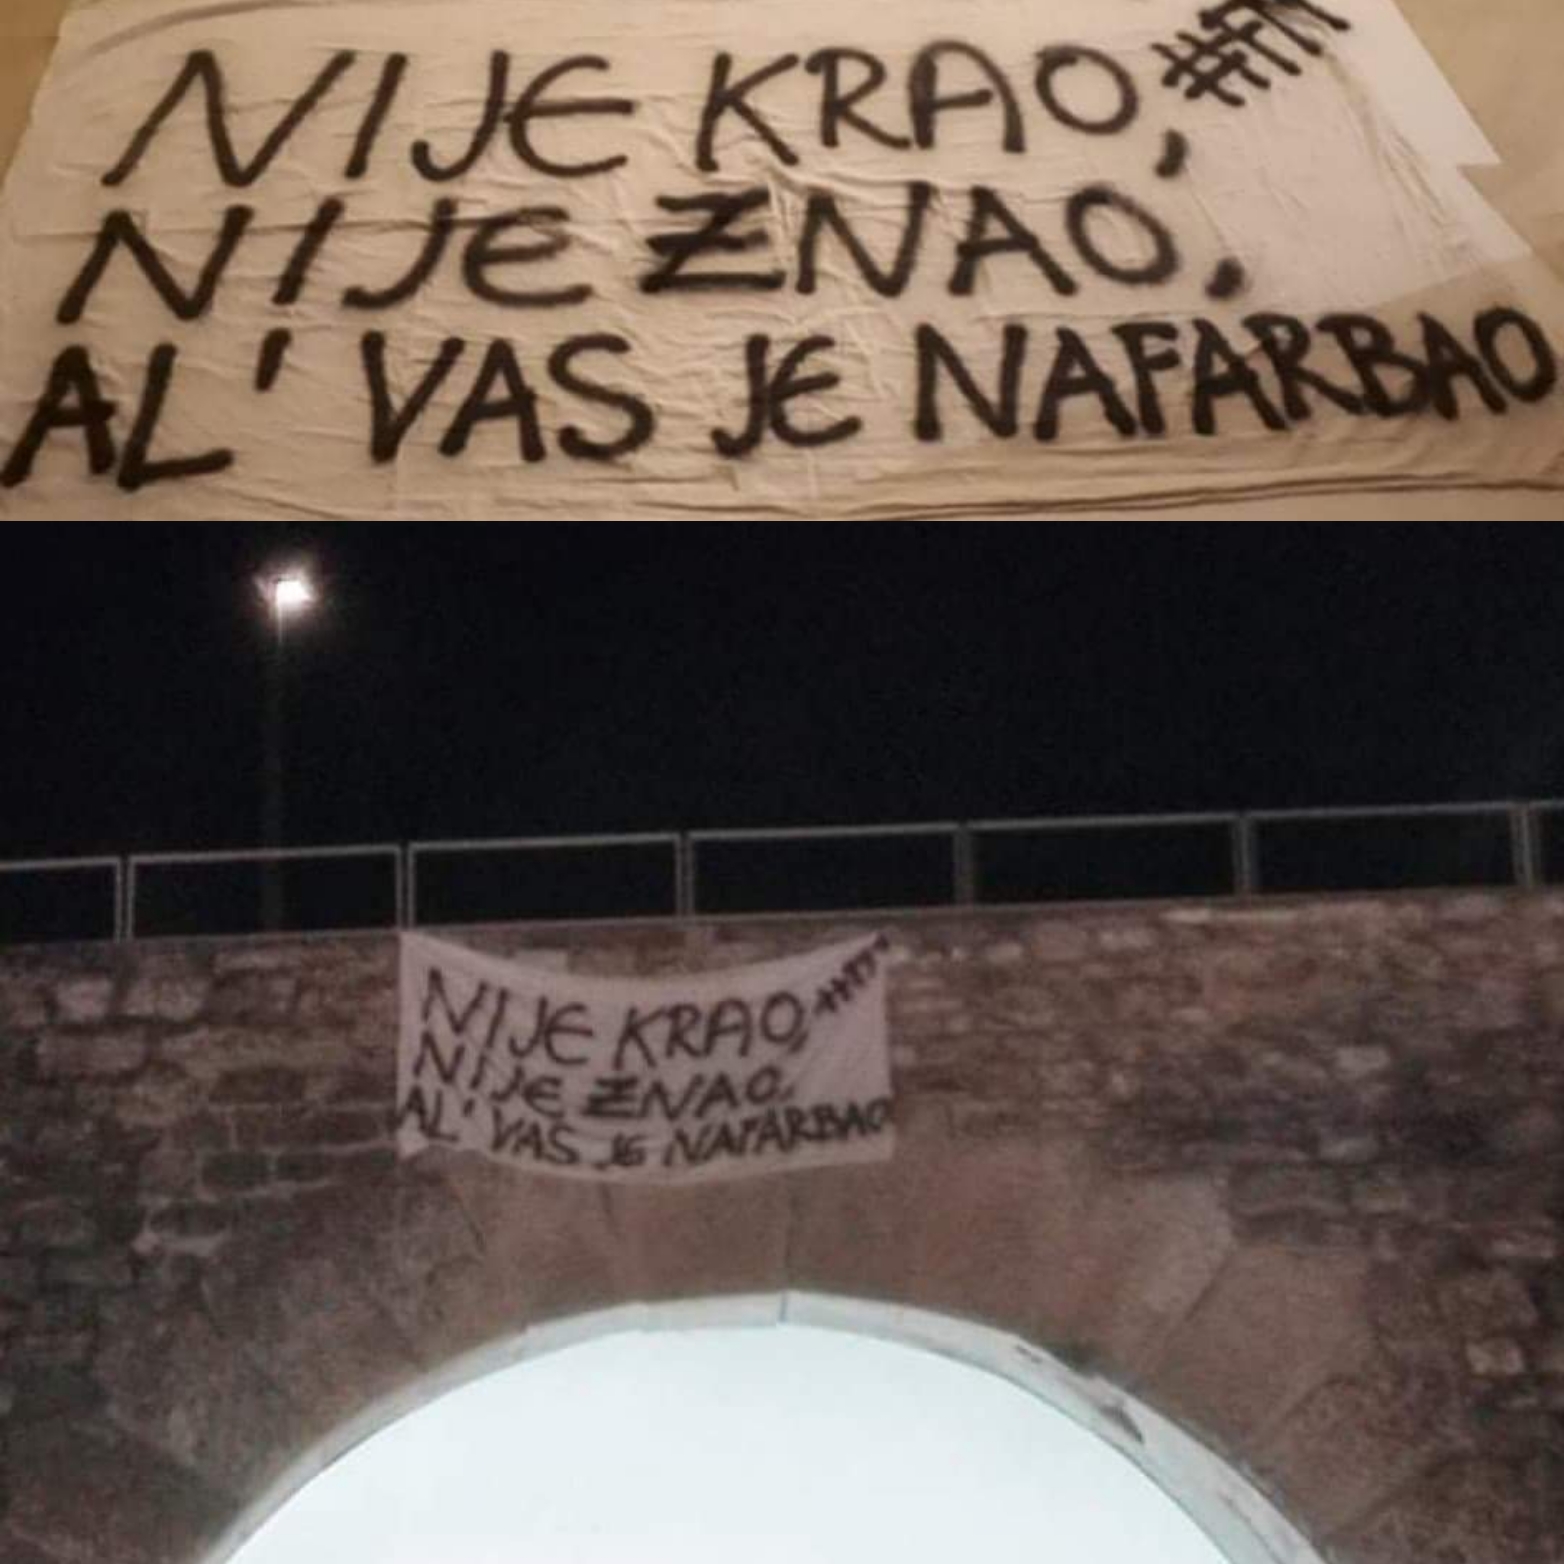 NIJE KRAO,
NIJE ZNAO,
AL' VAS JE NAFARBAO
NIJE KRAO,
NIJE ZNAO,
AL' VAS JE NAFARBAO